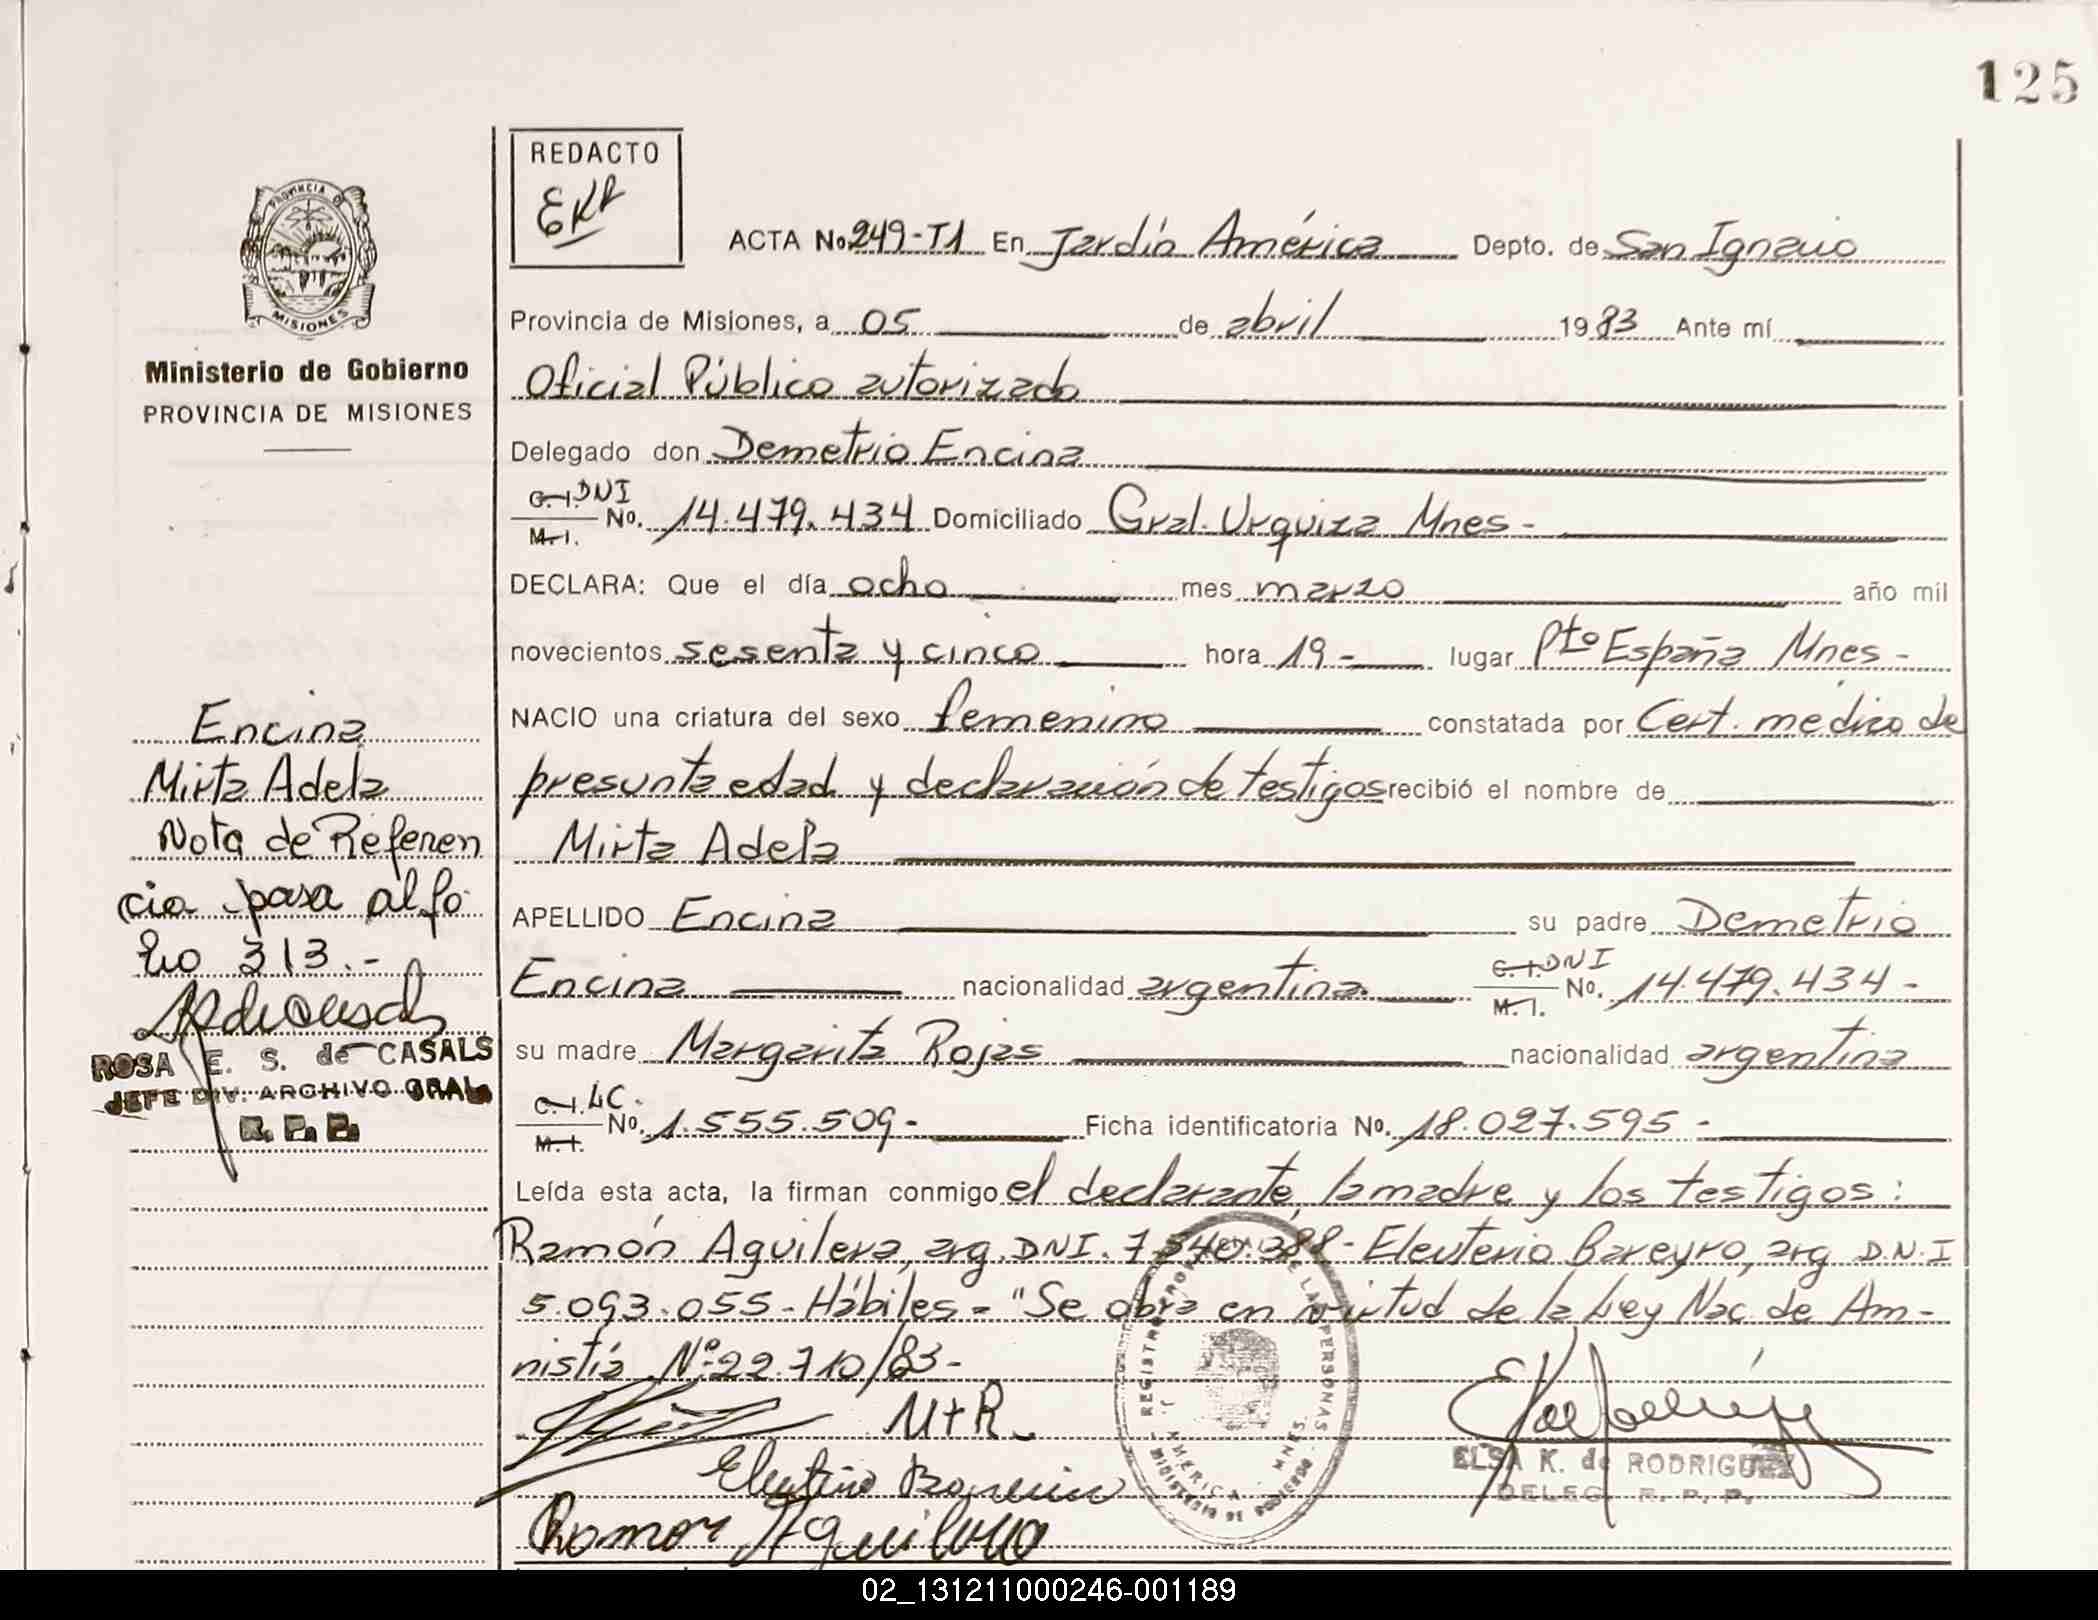 125
REDACTO
EKR
PROVINCIA DE
MISIONES
Ministerio de Gobierno
PROVINCIA DE MISIONES
ACTA No 249-T1 En Jardín América Depto. de San Ignacio
Provincia de Misiones, a 05 de abril 1983 Ante mí
Oficial Público autorizado
Delegado don Demetrio Encina
C.I. DNI
M.I. No. 14.479.434 Domiciliado Gral. Urquiza Mnes-
DECLARA: Que el día ocho mes marzo año mil
novecientos sesenta y cinco hora 19- lugar Pto España Mnes-
NACIO una criatura del sexo femenino constatada por Cert. medico de
presunta edad y declaración de testigos recibió el nombre de
Mirta Adela
APELLIDO Encina su padre Demetrio
Encina nacionalidad argentina C.I. DNI M.I. No. 14.479.434-
su madre Margarita Rojas nacionalidad argentina
C.I. LC. M.I. No. 1.555.509- Ficha identificatoria No. 18.027.595-
Leída esta acta, la firman conmigo el declarante, la madre y los testigos:
Ramón Aguilera, arg. DNI. 7.540.388- Eleuterio Bareyro, arg D.N.I
5.093.055- Hábiles- "Se obra en virtud de la Ley Nac. de Am-
nistía Nº 22.710/83-
M+R
Ramon Aguilera
ELSA K. de RODRIGUEZ
DELEG. R. P. P.
REGISTRO DE LAS PERSONAS
AMERICA MNES.
Encina
Mirta Adela
Nota de Referen
cia pasa al fo
lio 313.-
ROSA E. S. de CASALS
JEFE DIV. ARCHIVO GRAL
R. P. P.
02_131211000246-001189